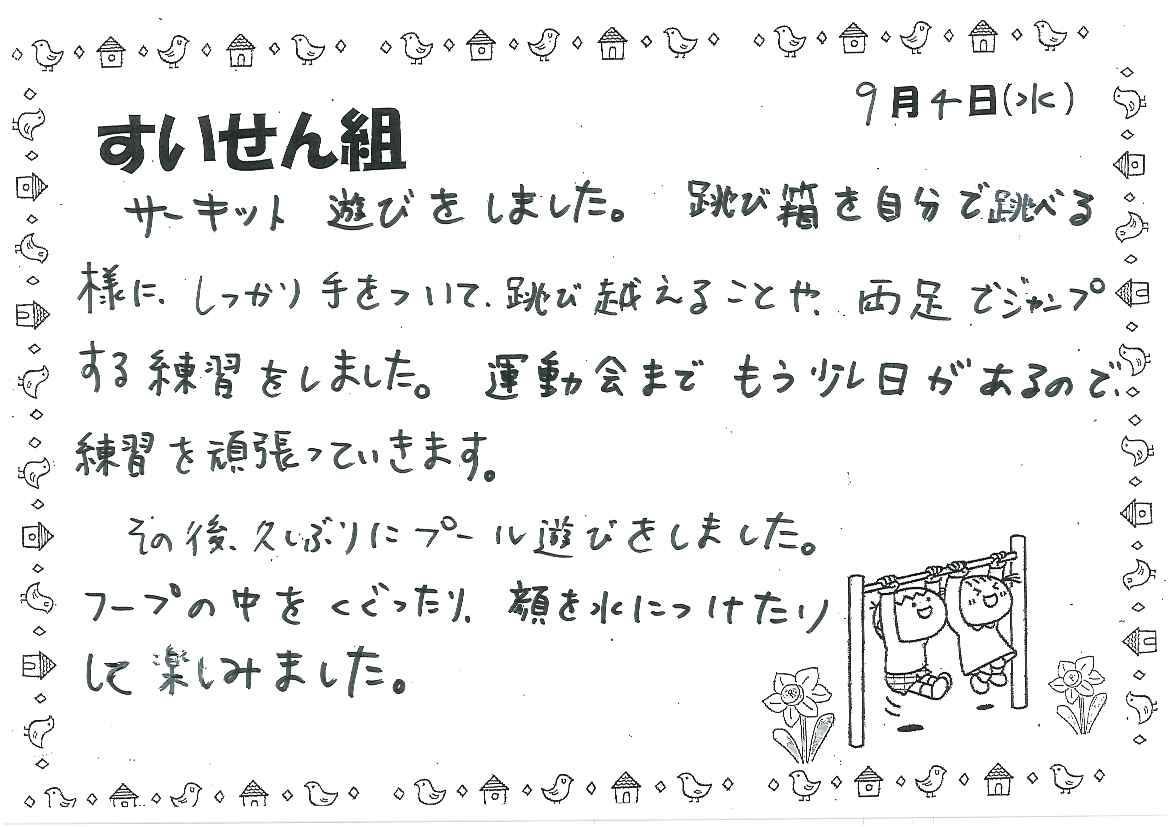 9月4日(水)
すいせん組
サーキット遊びをしました。跳び箱を自分で跳べる
様に、しっかり手をついて、跳び越えることや、両足でジャンプ
する練習をしました。運動会まで もう少し日があるので、
練習を頑張っていきます。
その後、久しぶりにプール遊びをしました。
フープの中をくぐったり、顔を水につけたり
して楽しみました。